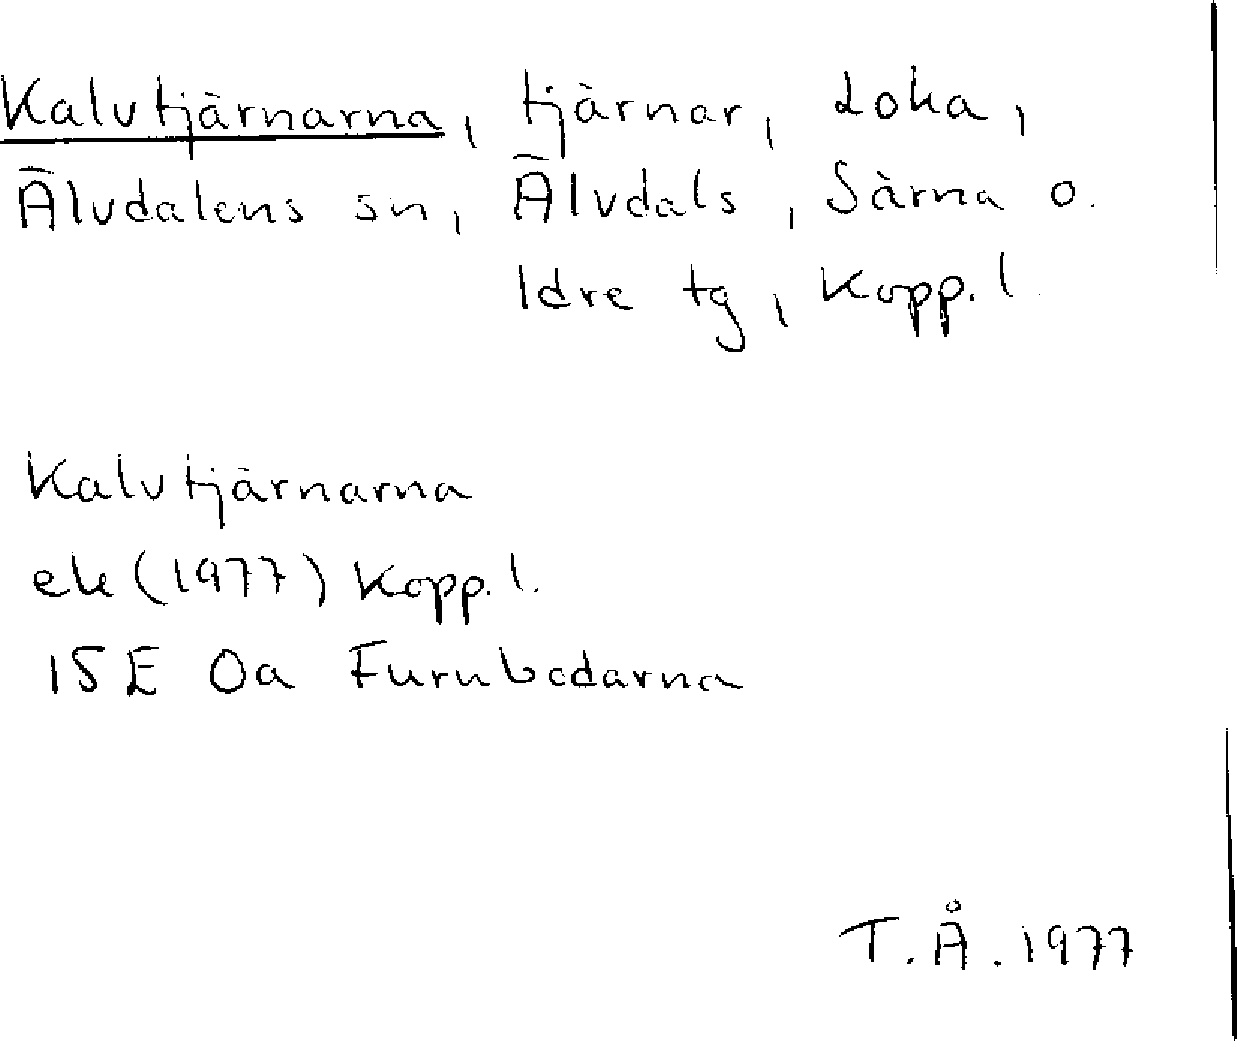 Kalvtjärnarna, tjärnar, Loka,
Älvdalens sn, Älvdals, Särna o.
Idre tg, Kopp.l.
Kalvtjärnarna
ek (1977) Kopp.l.
15E 0a Furubodarna
T.Å. 1977